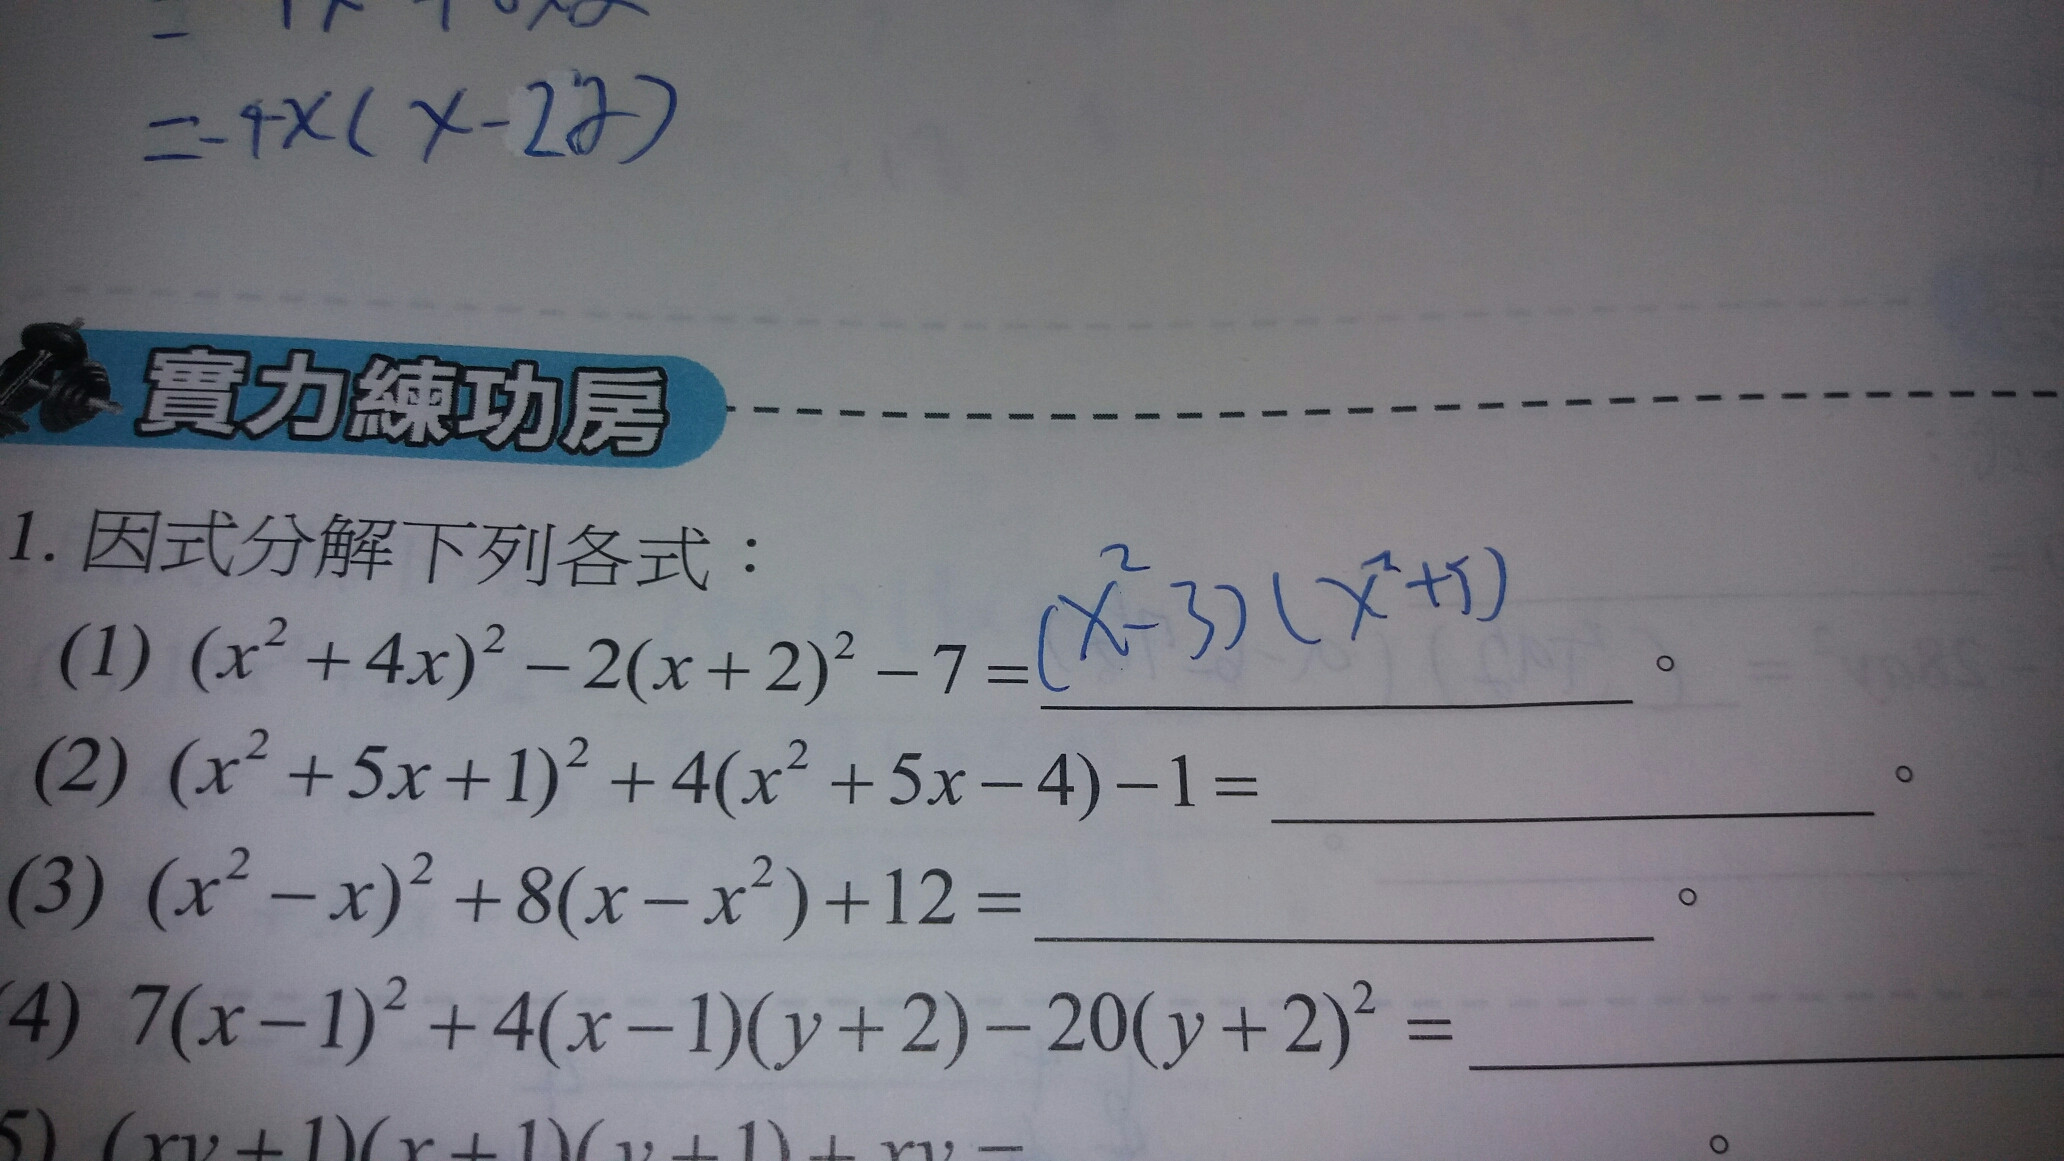 =-4x(x-2y)
實力練功房
1. 因式分解下列各式：
(1) (x²+4x)²-2(x+2)²-7=(x²-3)(x²+5)。
(2) (x²+5x+1)²+4(x²+5x-4)-1=。
(3) (x²-x)²+8(x-x²)+12=。
(4) 7(x-1)²+4(x-1)(y+2)-20(y+2)²=
5) (xy+1)(x+1)(y+1)+xy=。